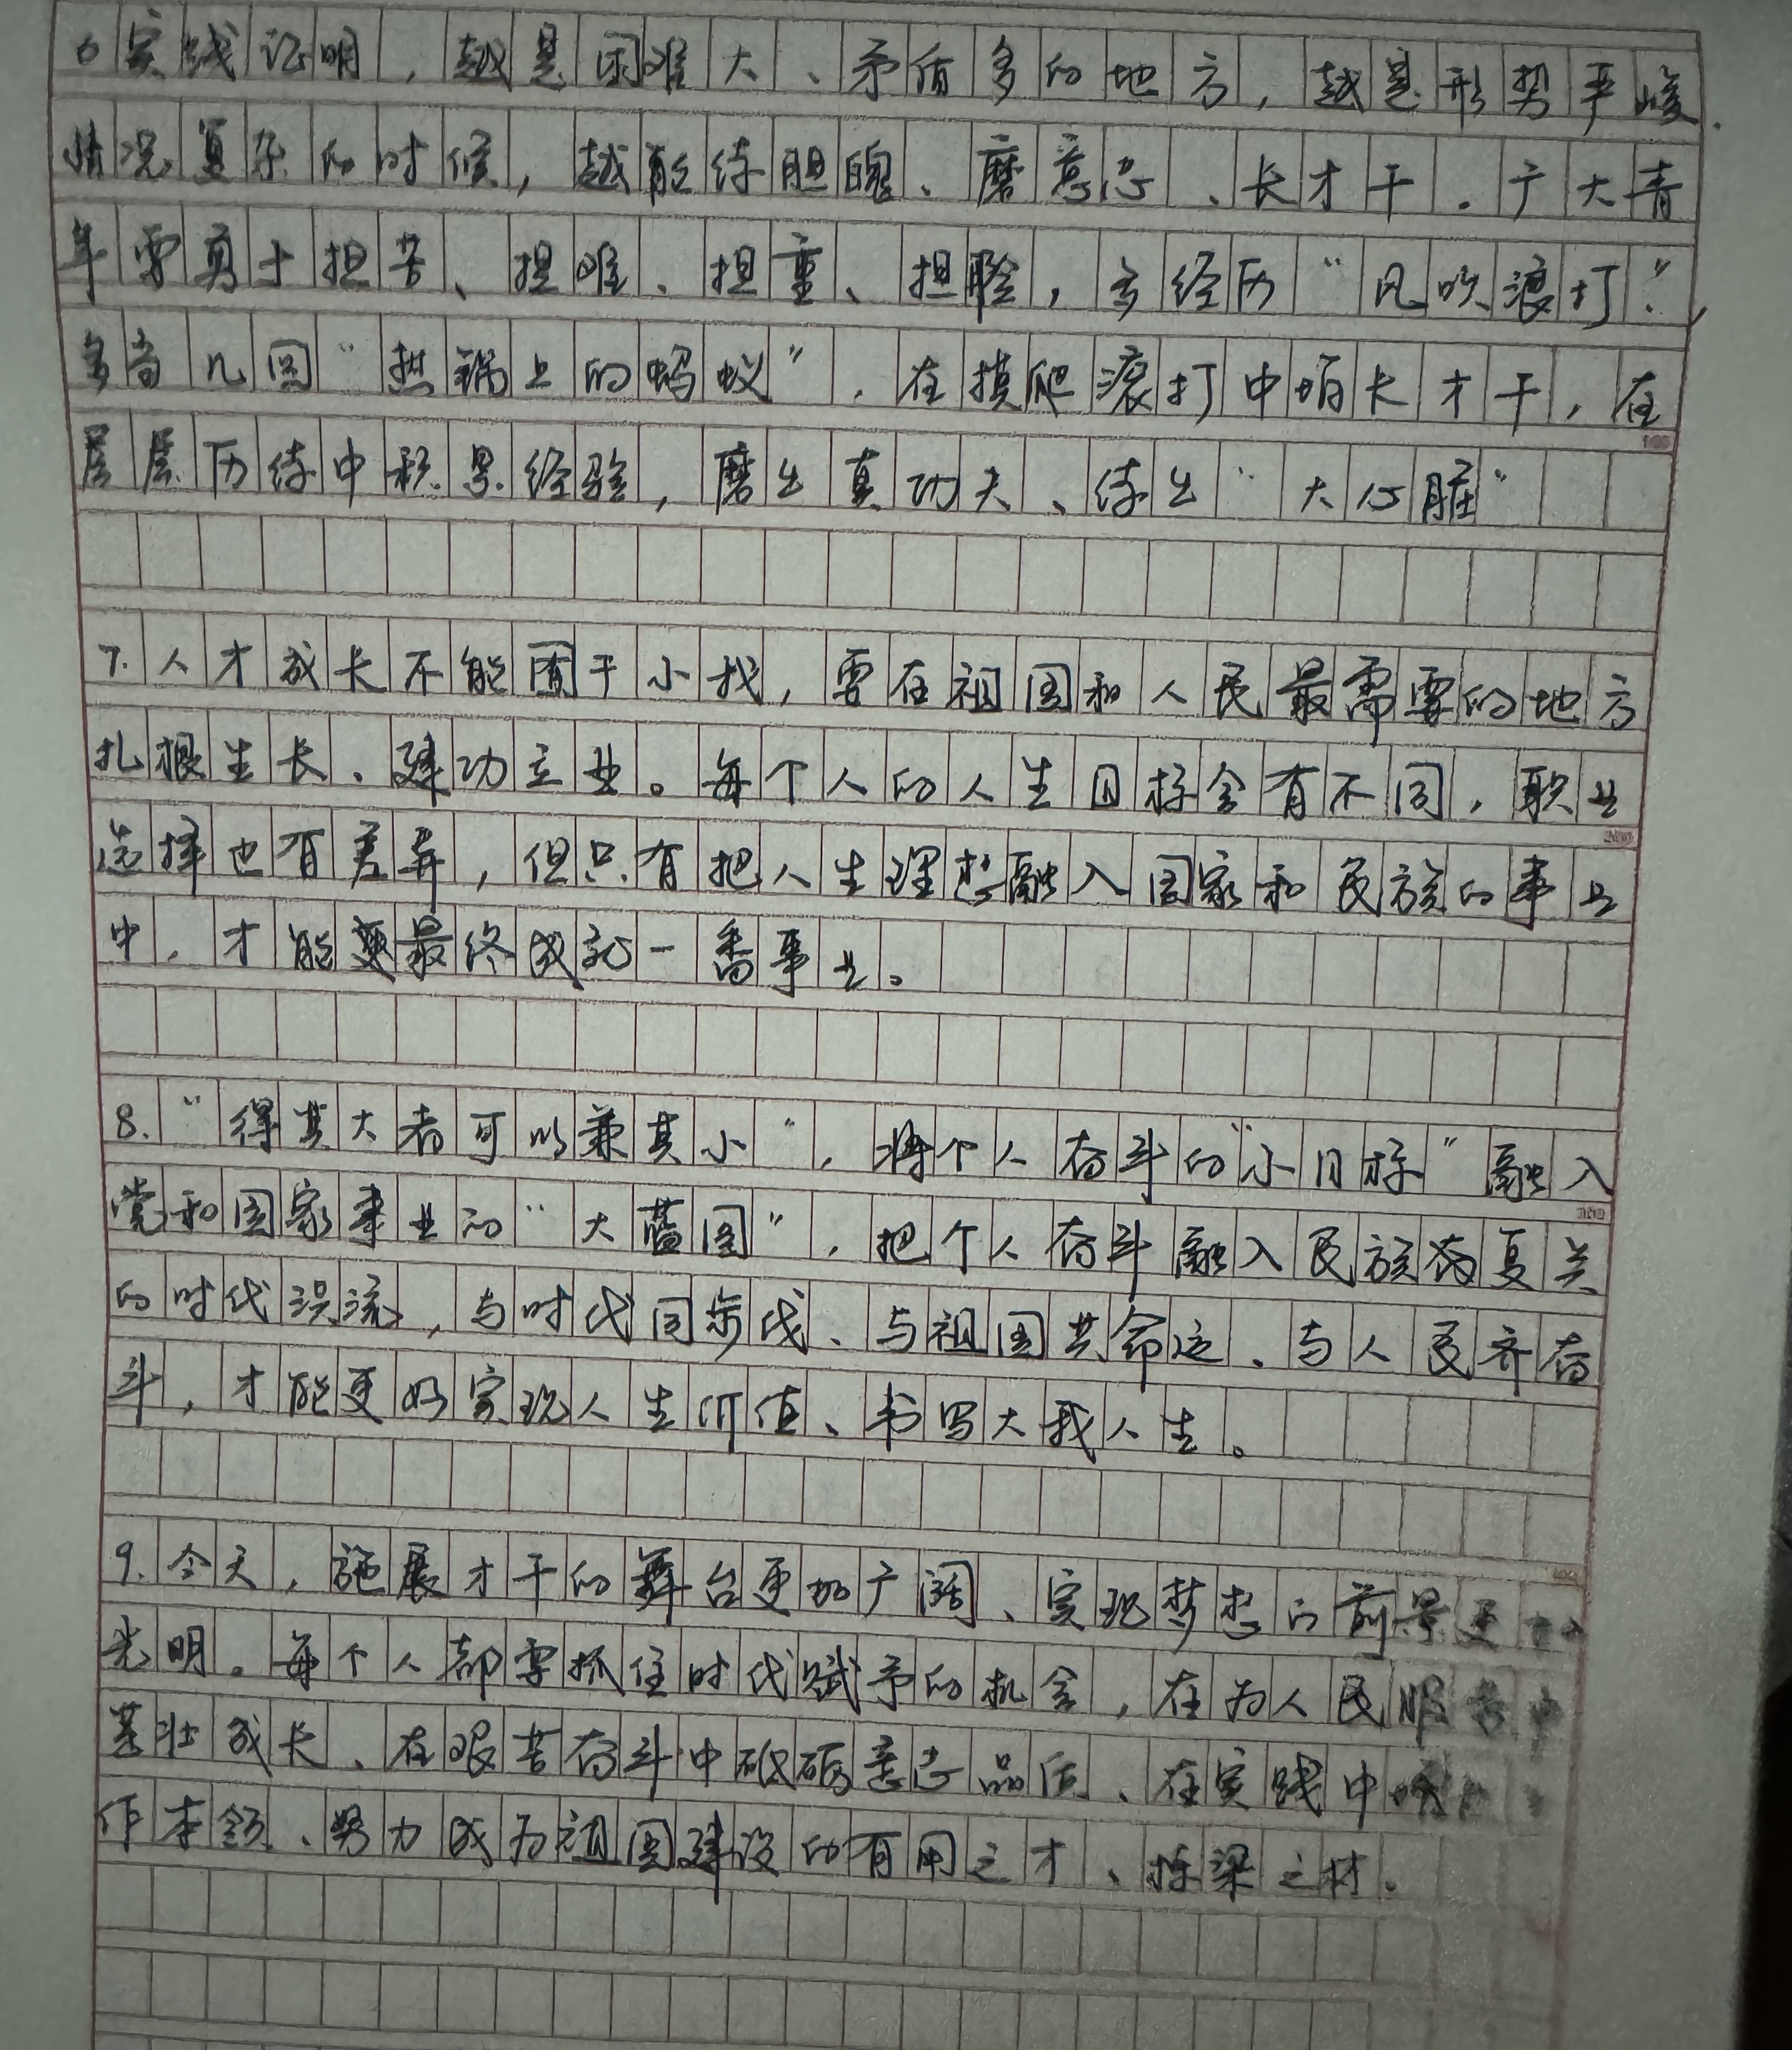 6实践证明，越是困难大、矛盾多的地方，越是形势严峻、
情况复杂的时候，越能练胆魄、磨意志、长才干。广大青
年要勇于担苦、担难、担重、担险，多经历“风吹浪打”，
多当几回“热锅上的蚂蚁”，在摸爬滚打中增长才干，在
层层历练中积累经验，磨出真功夫、练出“大心脏”
7.人才成长不能囿于小我，要在祖国和人民最需要的地方
扎根生长、建功立业。每个人的人生目标会有不同，职业
选择也有差异，但只有把人生理想融入国家和民族的事业
中，才能最终成就一番事业。
8.“得其大者可以兼其小”，将个人奋斗的“小目标”融入
党和国家事业的“大蓝图”，把个人奋斗融入民族复兴
的时代洪流，与时代同步伐、与祖国共命运、与人民齐奋
斗，才能更好实现人生价值、书写大我人生。
9.今天，施展才干的舞台更加广阔、实现梦想的前景更加
光明。每个人都要抓住时代赋予的机会，在为人民服务中
茁壮成长、在艰苦奋斗中砥砺意志品质、在实践中
作本领、努力成为祖国建设的有用之才、栋梁之材。
100
200
300
400